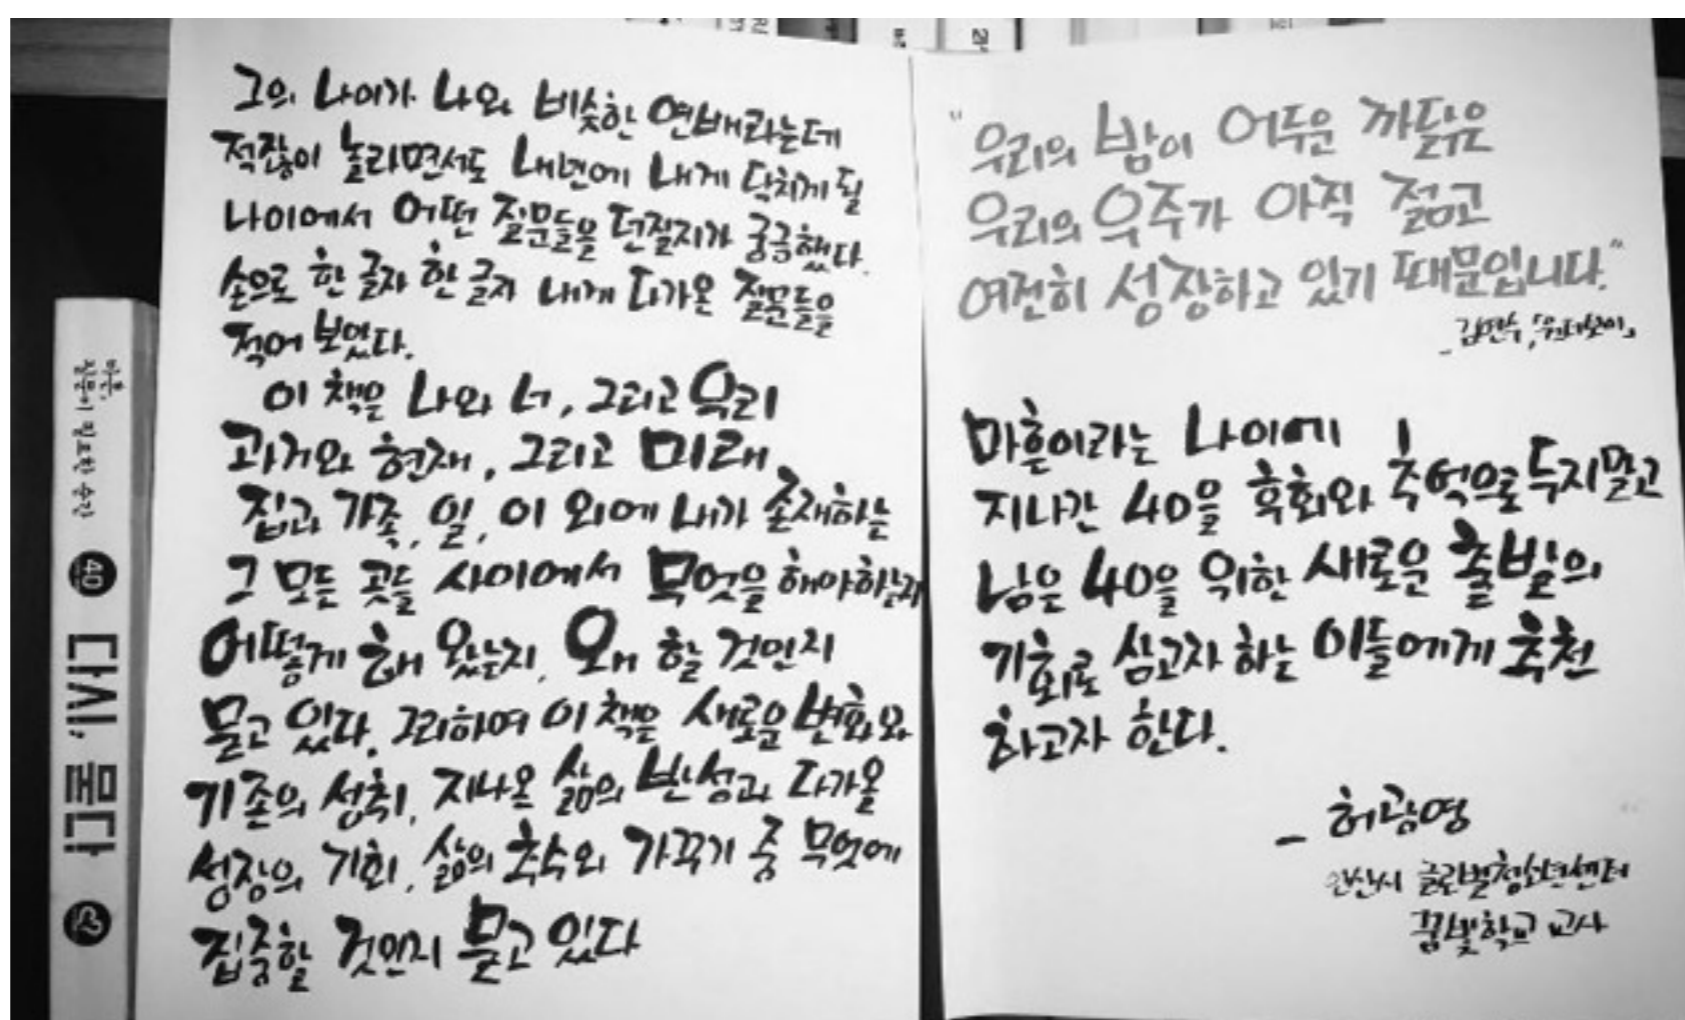 그의 나이가 나와 비슷한 연배라는데
적잖이 놀라면서도 내년에 내게 닥치게 될
나이에서 어떤 질문들을 던질지가 궁금했다.
손으로 한 글자 한 글자 내게 다가온 질문들을
적어 보았다.
이 책은 나와 너, 그리고 우리
과거와 현재, 그리고 미래,
집과 가족, 일, 이 외에 내가 존재하는
그 모든 곳들 사이에서 무엇을 해야하는지
어떻게 해 왔는지, 왜 할 것인지
묻고 있다. 그리하여 이 책은 새로운 변화와
기존의 성취, 지나온 삶의 반성과 다가올
성장의 기회, 삶의 추수와 가꾸기 중 무엇에
집중할 것인지 묻고 있다
"우리의 밤이 어두운 까닭은
우리의 우주가 아직 젊고
여전히 성장하고 있기 때문입니다."
- 김연수, 「원더보이」
마흔이라는 나이에
지나간 40을 후회와 추억으로 두지말고
남은 40을 위한 새로운 출발의
기회로 삼고자 하는 이들에게 추천
하고자 한다.
- 허광영
안산시 글로벌청소년센터
꿈빛학교 교사
마흔,
질문이 필요한 순간
40
다시, 묻다